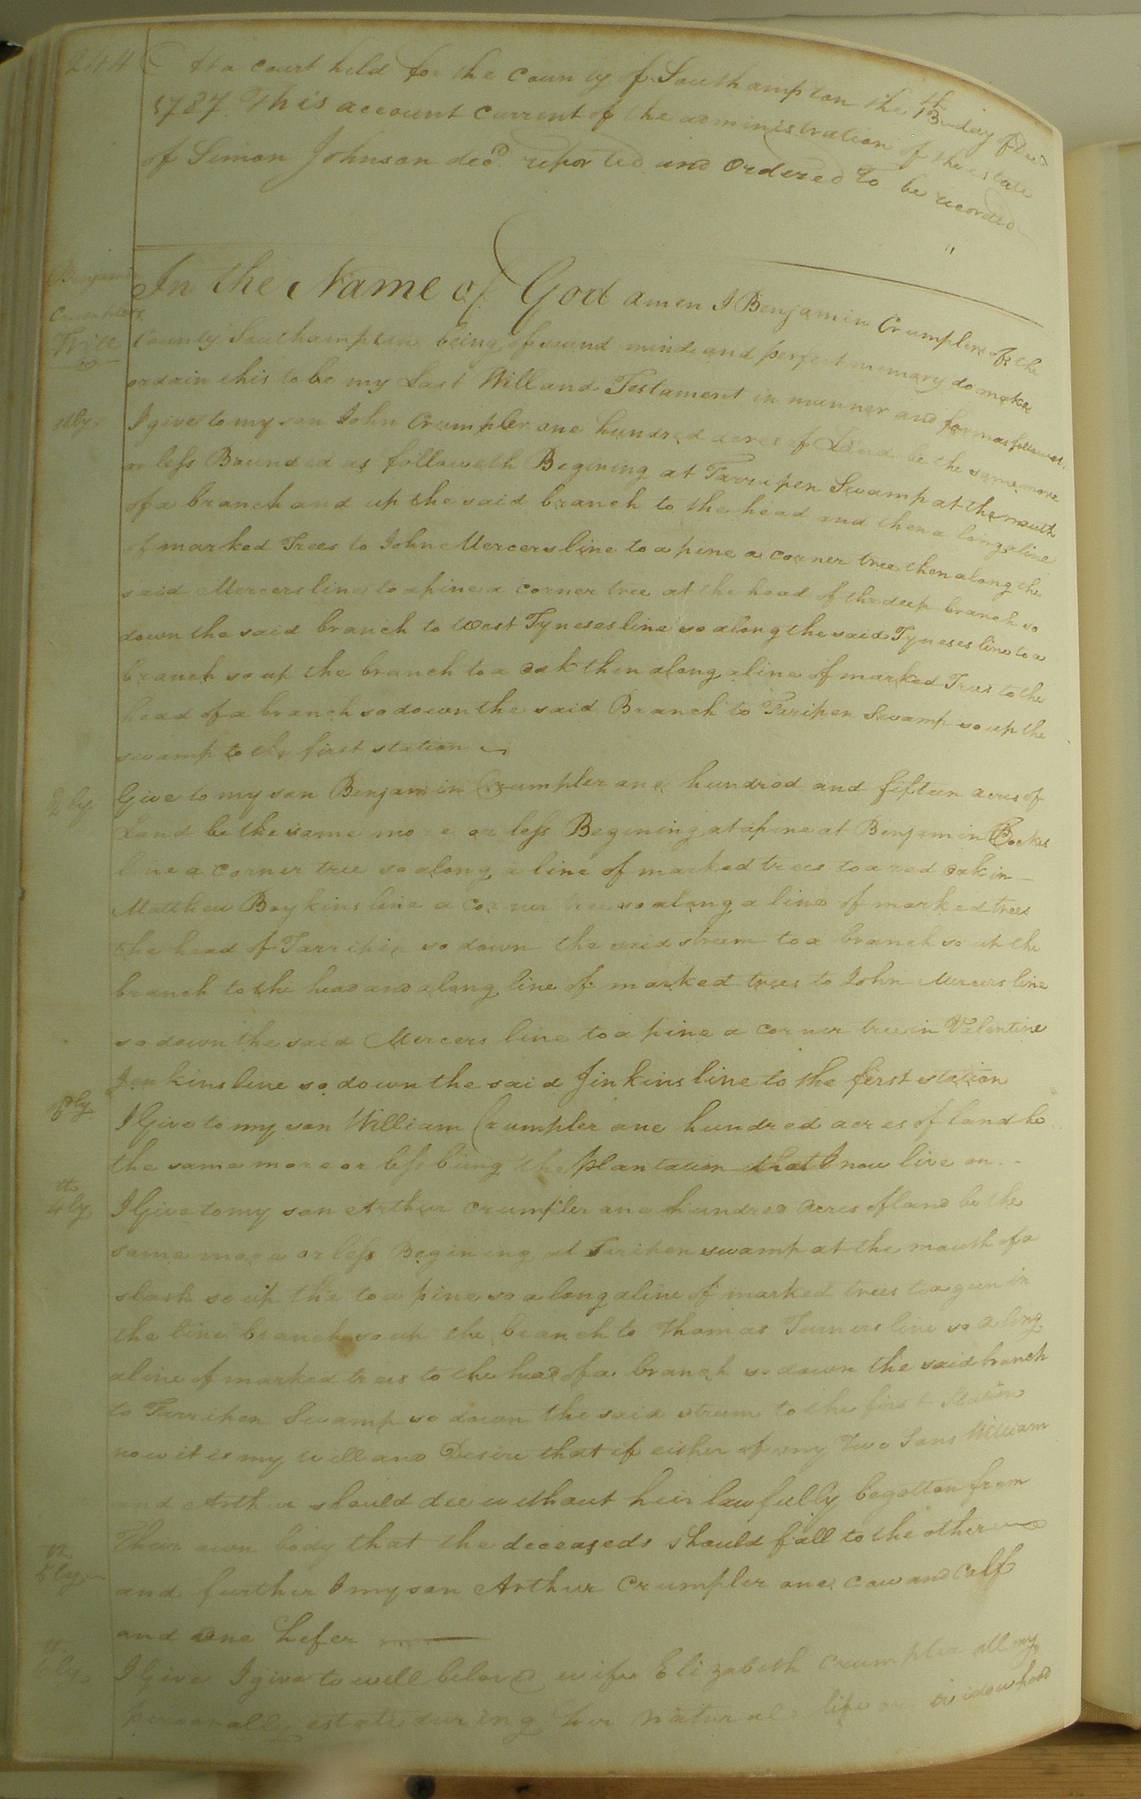 244 At a court held for the county of Southampton the 13th day of Decr
1787 This account current of the administration of the estate
of Simon Johnson decd. reported and ordered to be recorded
Benjamin
Crumplers
Will
In the Name of God amen I Benjamin Crumpler of the
County Southampton being of sound mind and perfect memary do make
ordain this to be my Last Will and Testament in manner and form as followeth
1stly I give to my son John Crumpler one hundred acres of Land be the same more
or less Bounded as followeth Begining at Tarripen Swamp at the mouth
of a branch and up the said branch to the head and then a long a line
of marked Trees to John Mercers line to a pine a corner tree then along the
said Mercers line to a pine a corner tree at the head of the deep branch so
down the said branch to West Tyneses line so along the said Tyneses line to a
branch so up the branch to a oak then along a line of marked Trees to the
head of a branch so down the said Branch to Teripen Swamp so up the
swamp to the first station
2ly Give to my son Benjamin Crumpler one hundred and fifteen acres of
Land be the same more or less Begining at a pine at Benjamin Cockes
line a corner tree so along a line of marked trees to a red oak in
Matthew Boykins line a corner tree so along a line of marked trees
the head of Tarripin so down the said stream to a branch so up the
branch to the head and along line of marked trees to John Mercers line
so down the said Mercers line to a pine a corner tree in Valentine
Jenkins line so down the said Jinkins line to the first station
3rdly I Give to my son William Crumpler one hundred acres of land be
the same more or less being the plantation that I now live on
4thly I Give to my son Arthur Crumpler one hundred acres of land be the
same more or less Begining at Teripen swamp at the mouth of a
slash so up the to a pine so a long a line of marked trees to a gum in
the line branch so up the branch to Thomas Turners line so along
a line of marked trees to the head of a branch so down the said branch
to Tarripen Swamp so down the said stream to the first Station
now it is my will and Desire that if either of my Two Sons William
and Arthur should dee without heir lawfully begotten from
Their own body that the deceaseds should fall to the other
5thly and further I my son Arthur Crumpler one cow and calf
and one hefer
6thly I Give I give to well beloved wife Elizabeth Crumpler all my
personally estate during her natural life or widowhood